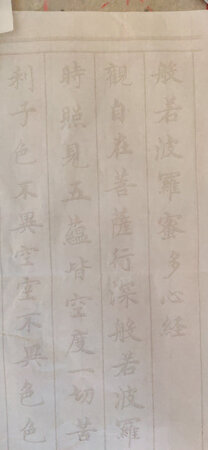 般若波羅蜜多心經
觀自在菩薩行深般若波羅
時照見五蘊皆空度一切苦
利子色不異空空不異色色